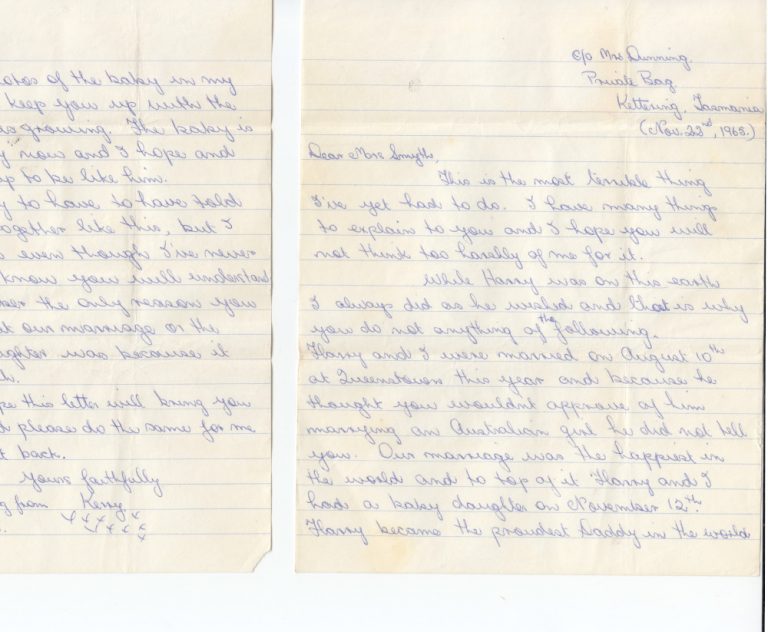 otos of the baby in my
keep you up with the
is growing. The baby is
y now and I hope and
up to be like him.
y to have to have told
together like this, but I
even though I've never
know you will understand
the only reason you
t our marriage or the
ughter was because it
h.
pe this letter will bring you
d please do the same for me
t back.
Yours faithfully
g from Kerry
c/o Mrs Dunning.
Private Bag
Kettering, Tasmania
(Nov. 22nd, 1963.)
Dear Mrs Smyth,
This is the most terrible thing
I've yet had to do. I have many things
to explain to you and I hope you will
not think too harshly of me for it.
While Harry was on this earth
I always did as he wished and that is why
you do not anything of the following.
Harry and I were married on August 10th
at Queenstown this year and because he
thought you wouldn't approve of him
marrying an Australian girl he did not tell
you. Our marriage was the happiest in
the world and to top of it Harry and I
had a baby daughter on November 12th.
Harry became the proudest Daddy in the world